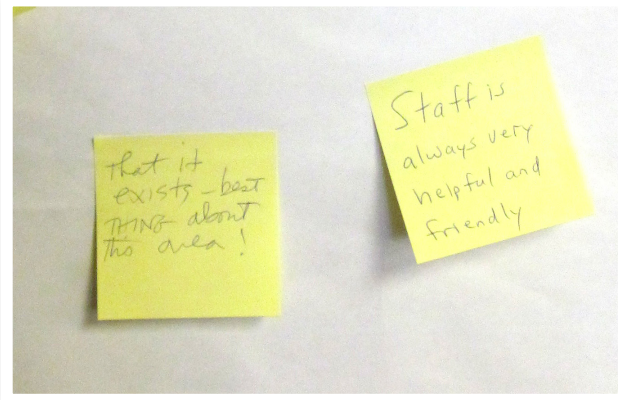 that it
exists - best
THING about
this area!
Staff is
always very
helpful and
friendly